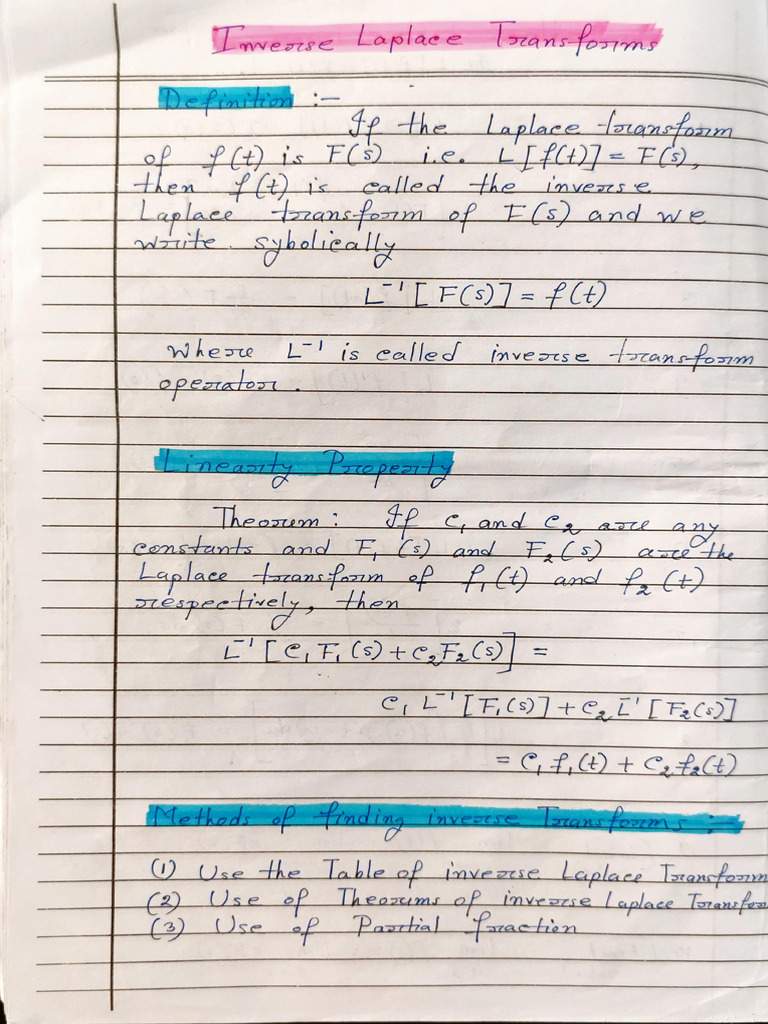 Inverse Laplace Transforms
Definition :-
If the Laplace transform
of f(t) is F(s) i.e. L[f(t)] = F(s),
then f(t) is called the inverse
Laplace transform of F(s) and we
write. sybolically
L⁻¹[F(s)] = f(t)
where L⁻¹ is called inverse transform
operator.
Linearity Property
Theorem : If C₁ and C₂ are any
constants and F₁(s) and F₂(s) are the
Laplace transform of f₁(t) and f₂(t)
respectively, then
L⁻¹[C₁F₁(s) + C₂F₂(s)] =
C₁ L⁻¹[F₁(s)] + C₂ L⁻¹[F₂(s)]
= C₁f₁(t) + C₂f₂(t)
Methods of finding inverse Transforms :-
(1) Use the Table of inverse Laplace Transform
(2) Use of Theorums of inverse Laplace Transfor
(3) Use of Partial fraction